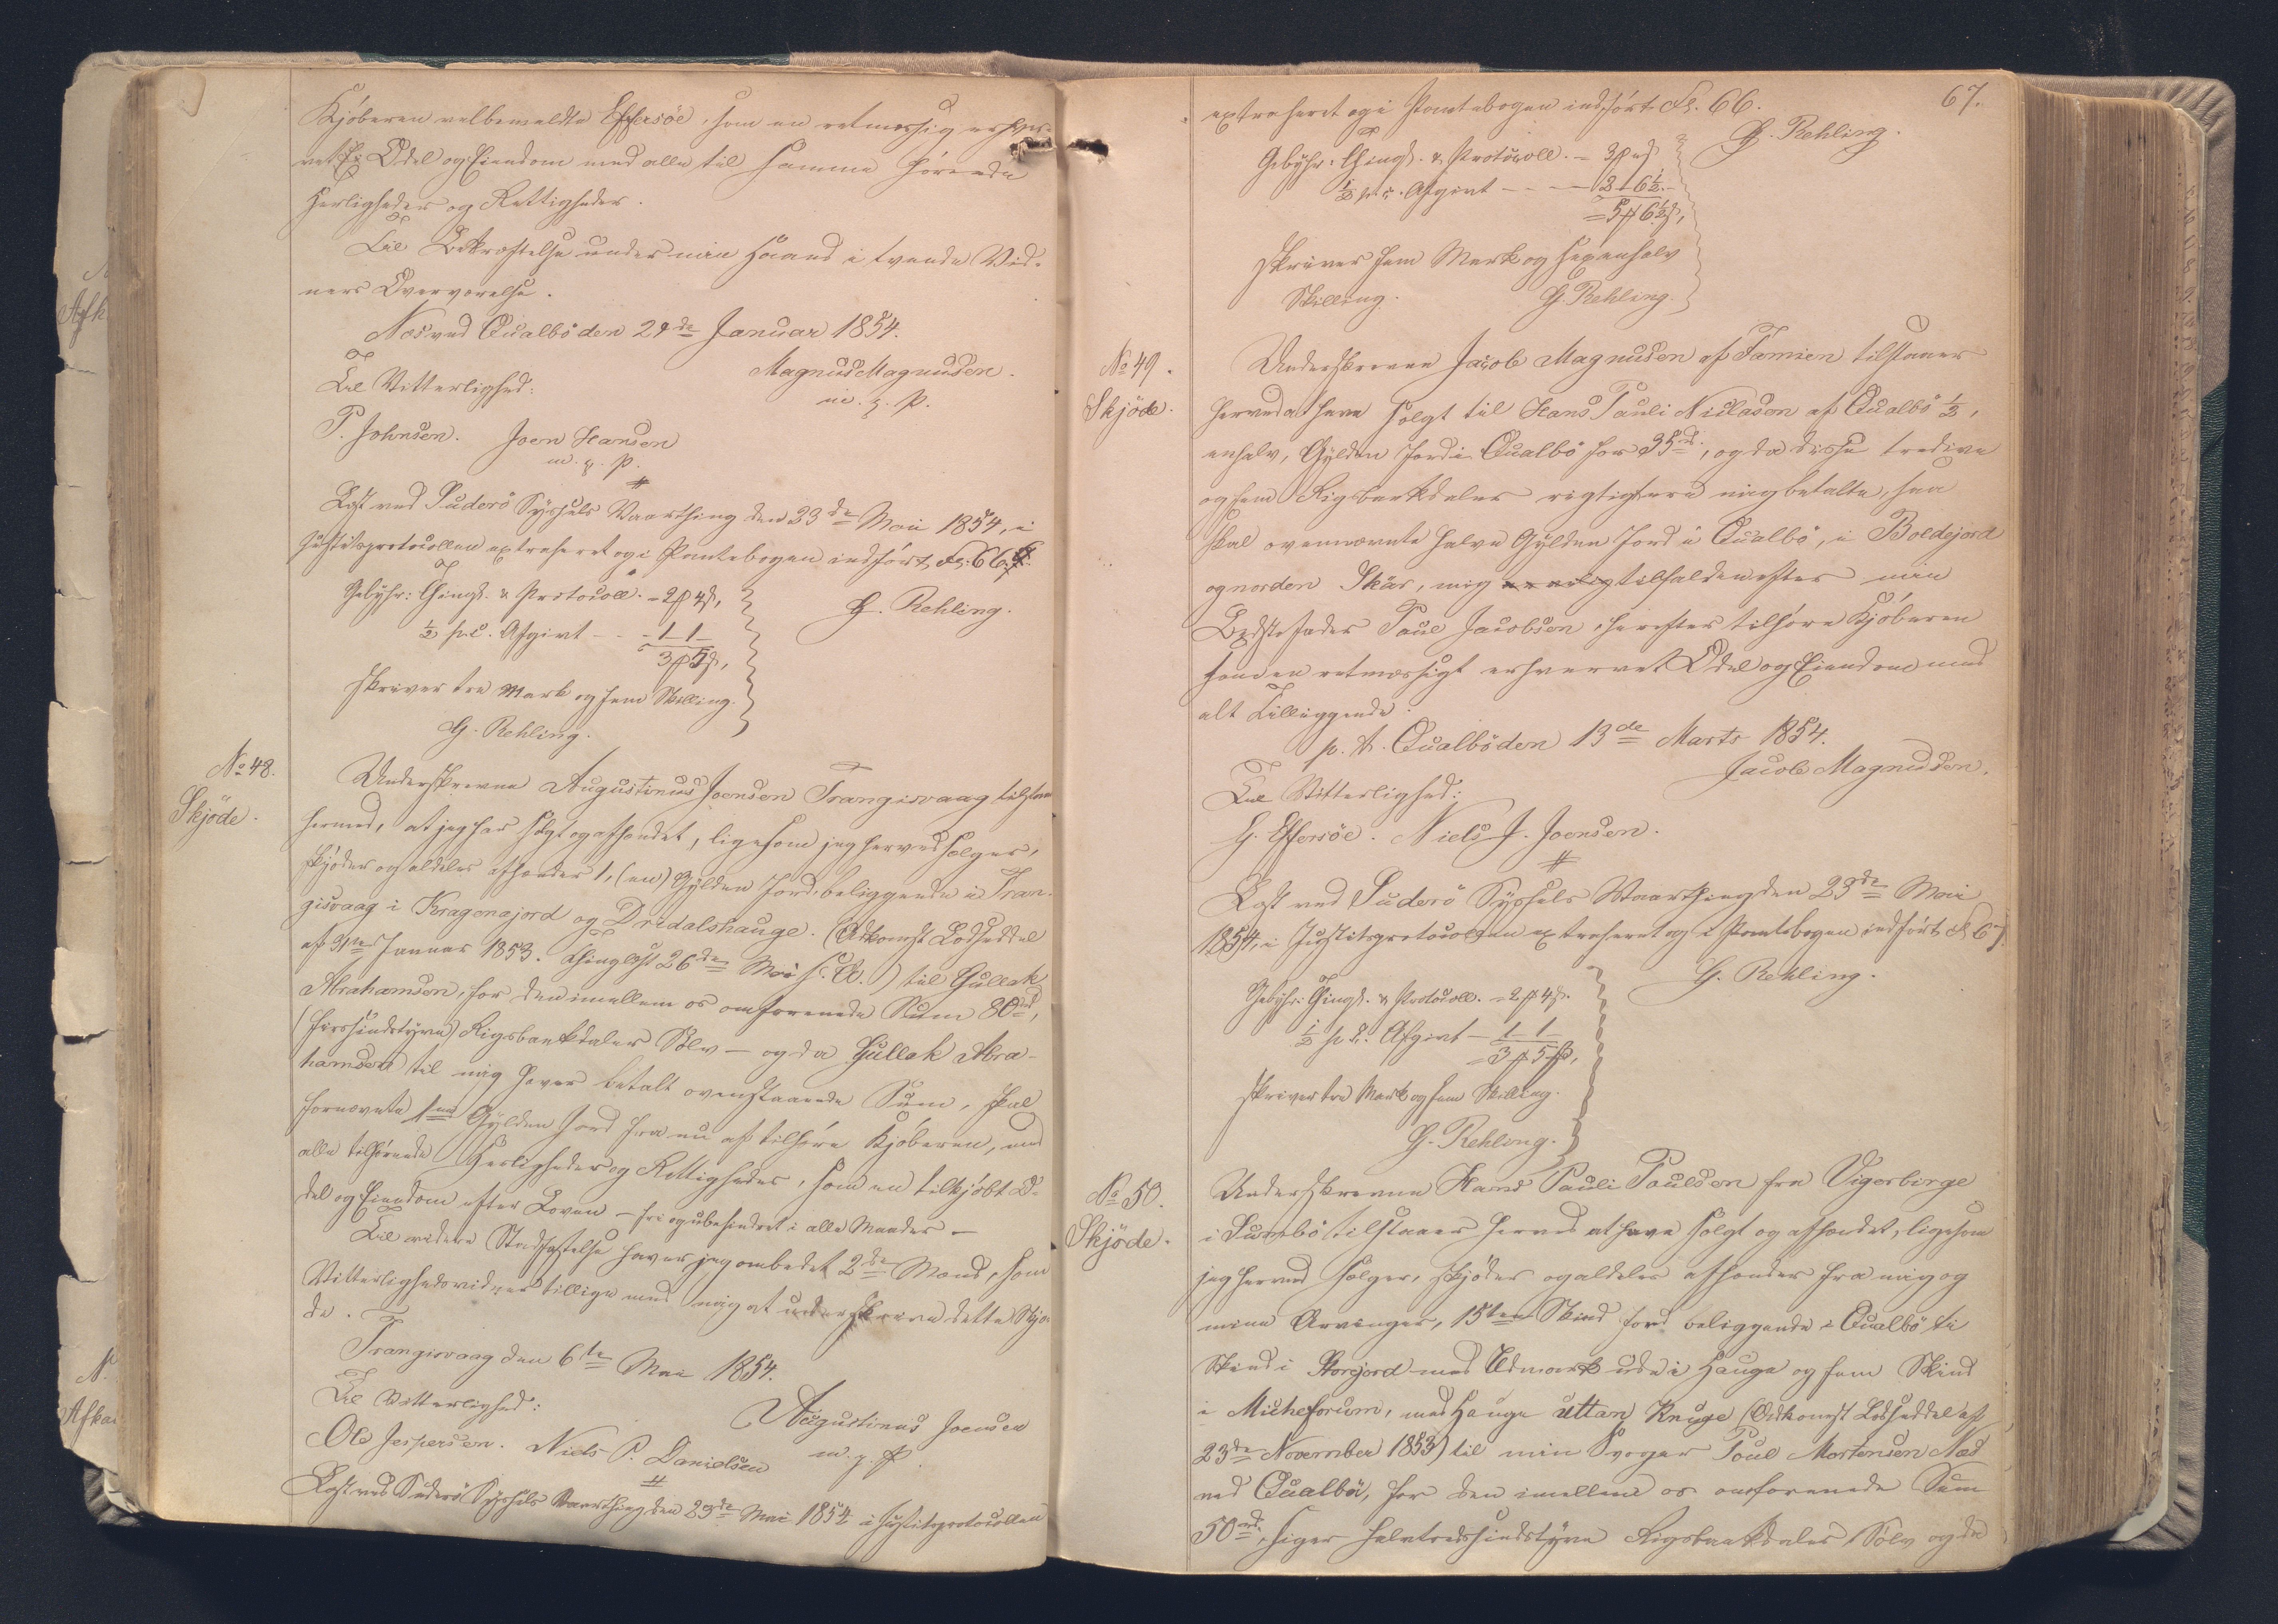 Kjøberen velbemeldte Effersöe, som en retmæssig erhver-
vet Odel og Eiendom med alle til samme hörende
Herligheder og Rettigheder.
Til Bekræftelse under min Haand i tvende Vid-
ners Overværelse.
Næs ved Qualbö den 24de Januar 1854.
Magnus Magnusen.
m. p. P.
Til Vitterlighed:
P. Johnsen. Joen Hansen
m. p. P.
Læst ved Suderö Syssels Vaarthing den 23de Mai 1854, i
Justitsprotocollen extraheret og i Pantebogen indfört Fol. 66.
Gebyhr: Thingl. & Protocoll. = 2 ₻ 4 ß,
½ p.C. Afgivt - - - 1 - 1 -
3 ₻ 5 ß,
skriver tre Mark og fem Skilling.
G. Rehling.
G. Rehling.
No 48.
Skjöde.
Underskrevne Augustinus Joensen Trangisvaag tilstaar
hermed, at jeg har solgt og afhændet, ligesom jeg herved sælger,
skjöder og aldeles afhænder 1, (en) Gylden Jord, beliggende i Tran-
gisvaag i Kragonajord og Dridalshauge. (Adkomst Lodseddel
af Januar 1853. Thinglæst 26de Mai s. A.) til Gullak
Abrahamsen, for den imellem os omforenede Sum 80rd,
(firsindstyve) Rigsbankdaler Sölv — og da Gullak Abra-
hamsen til mig haver betalt ovenstaaende Sum, skal
fornævnte 1en Gylden Jord fra nu af tilhöre Kjöberen, med
alle tilhörende Herligheder og Rettigheder, som en tilkjöbt O-
del og Eiendom efter Loven — fri og ubehindret i alle Maader —
Til videre Stadfæstelse haver jeg ombedet 2de Mænd, som
Vitterlighedsvidner tillige med mig at underskrive dette Skjö-
de.
Trangisvaag den 6te Mai 1854.
Til Vitterlighed:
Augustinus Joensen
m. p. P.
Ole Jespersen. Niels P. Danielsen
Læst ved Suderö Syssels Vaarthing den 23de Mai 1854 i Justitsprotocollen
67.
extraheret og i Pantebogen indfört Fol. 66.
G. Rehling.
Gebyhr: Thingl. & Protocoll. = 3 ₻ " ß
½ p.C. Afgivt - - - 2 - 6½ -
= 5 ₻ 6½ ß,
skriver fem Mark og sexenhalv
Skilling. G. Rehling.
No 49.
Skjöde.
Underskrevne Jacob Magnusen af Famien tilstaaer
herved at have solgt til Hans Pauli Niclasen af Qualbö ½,
enhalv, Gylden Jord i Qualbö for 35rd, og da disse tredive
og fem Rigsbankdaler rigtig ere mig betalte, saa
skal ovennævnte halve Gylden Jord i Qualbö, i Boldejord
og norden Skår, mig tilfalden efter min
Bedstefader Poul Jacobsen, herefter tilhöre Kjöberen
som en retmæssigt erhvervet Odel og Eiendom med
alt Tilliggende.
p. t. Qualbö den 13de Marts 1854.
Jacob Magnusen.
Til Vitterlighed:
G. Effersöe. Niels J. Joensen.
Læst ved Suderö Syssels Vaarthing den 23de Mai
1854, i Justitsprotocollen extraheret og i Pantebogen indfört Fol 67.
G. Rehling.
Gebyhr: Thingl. & Protocoll. = 2 ₻ 4 ß.
½ p.C. Afgivt - 1 - 1
= 3 ₻ 5 ß,
skriver tre Mark og fem Skilling.
G. Rehling.
No 50.
Skjöde.
Underskrevne Hans Pauli Poulsen fra Vigerbirge
i Sumbö tilstaaer herved at have solgt og afhændet, ligesom
jeg herved sælger, skjöder og aldeles afhænder fra mig og
mine Arvinger, 15ten Skind Jord beliggende i Qualbö ti
Skind i Storjord med Udmark ude i Hauge og fem Skind
i Micheforum, med Hauge uttan Knuge (Adkomst Lodseddel af
23de November 1853) til min Svoger Poul Mortensen Næs
ved Qualbö, for den imellem os omforenede Sum
50rd, siger halvtredsindstyve Rigsbankdaler Sölv og da